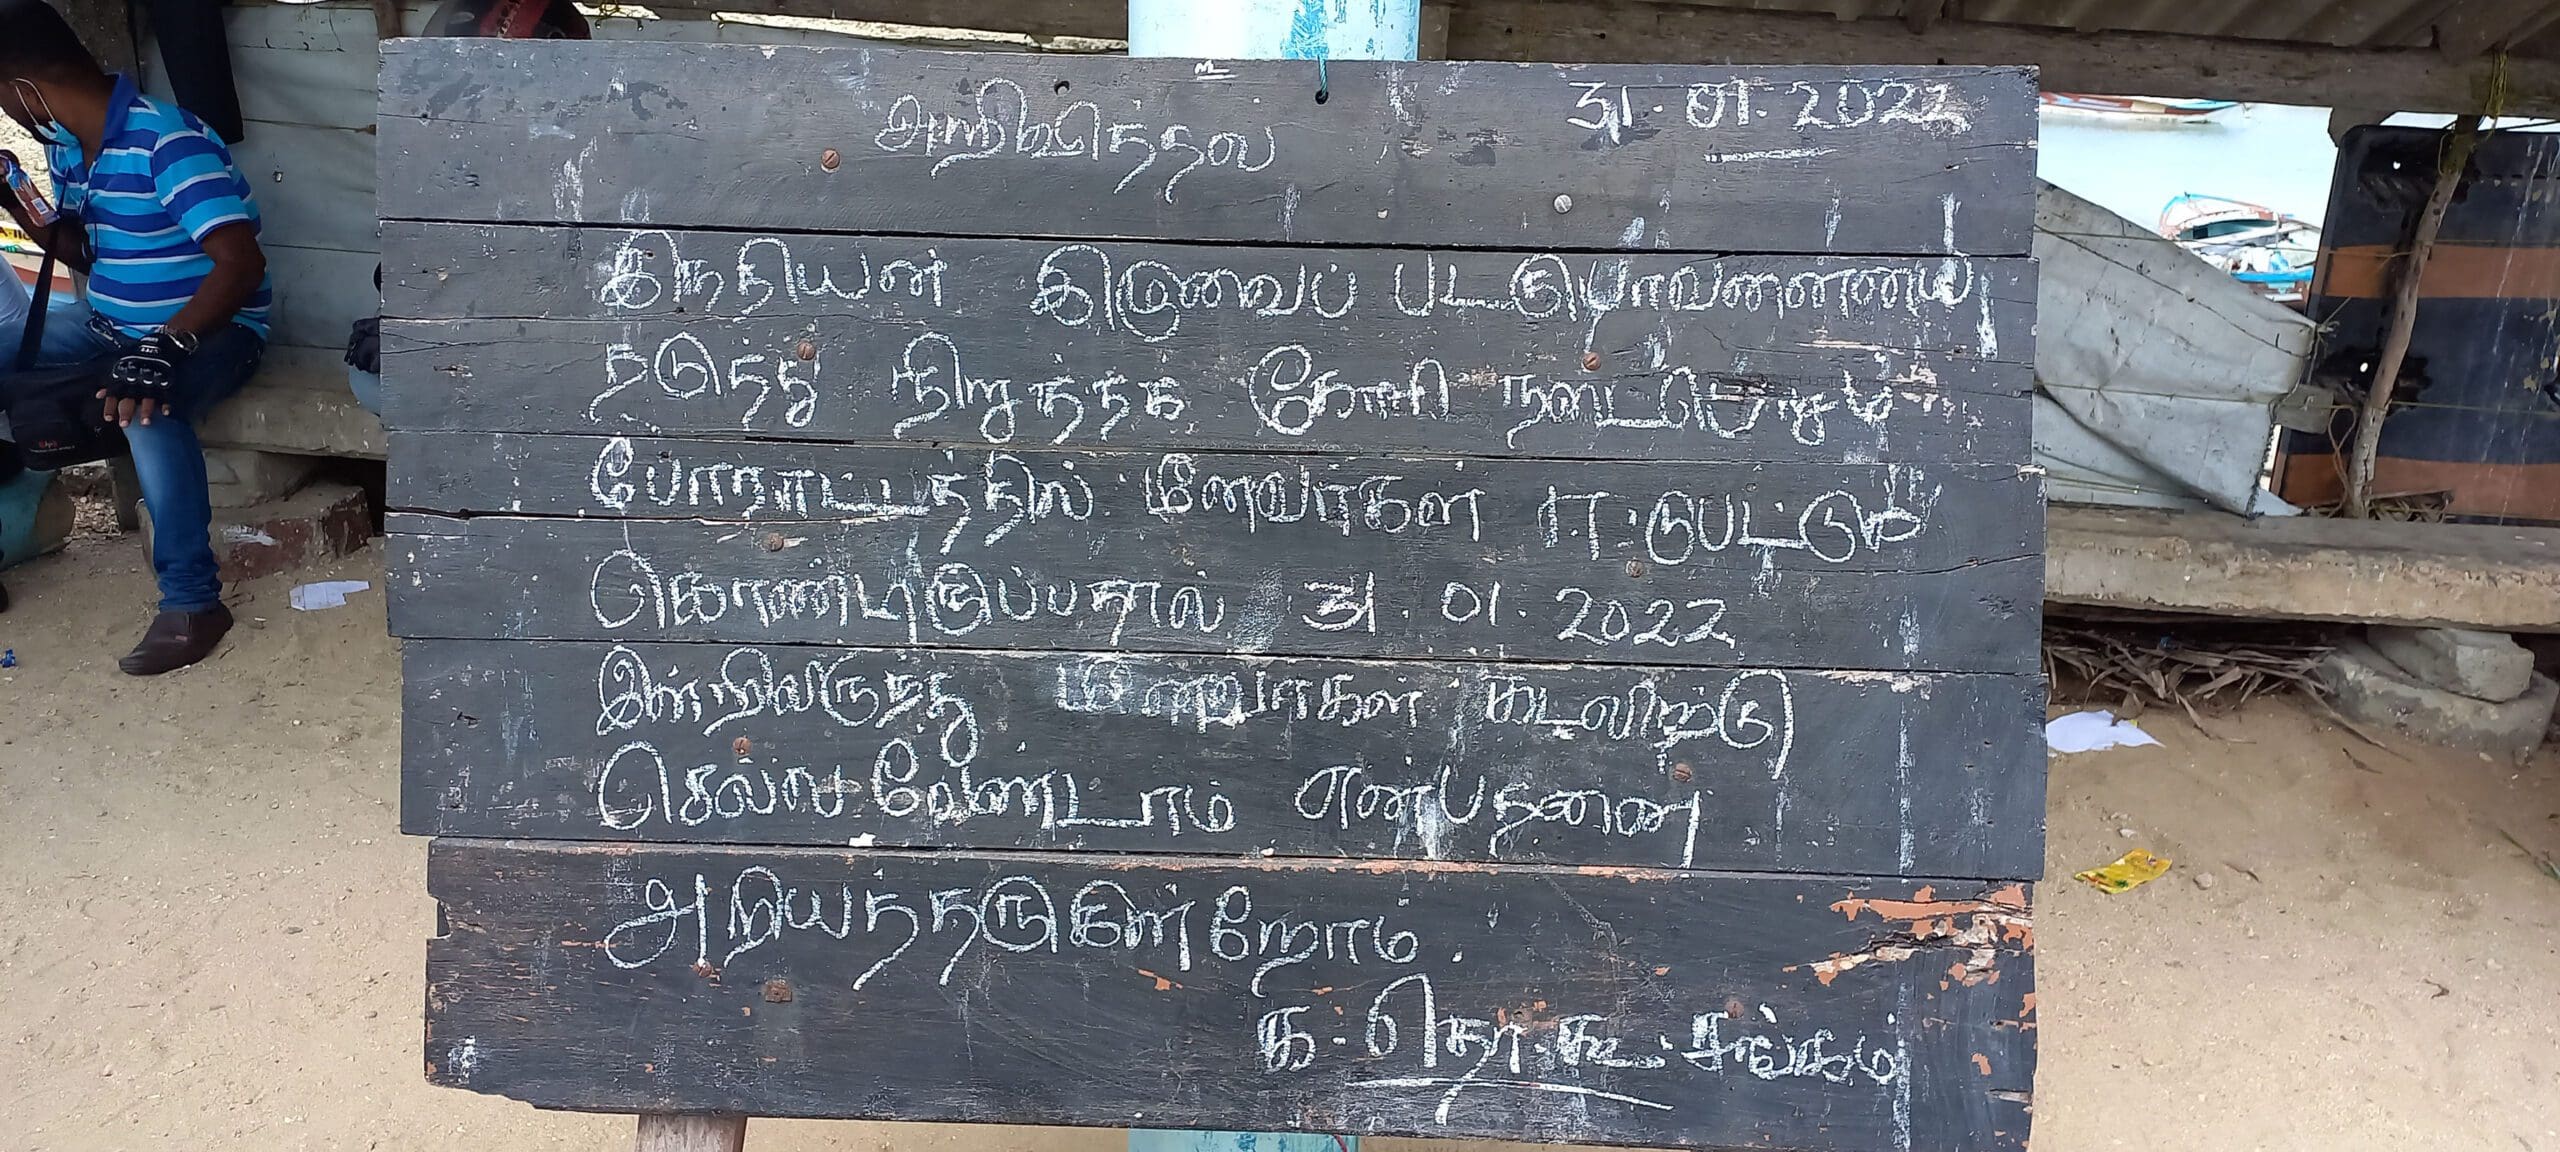 31.01.2022
அறிவித்தல்
இந்தியன் இழுவைப் படகு
நிறுத்தக் கோரி நடைபெறும்
போராட்டத்தில் மீனவர்கள் ஈடுபட்டுக்
கொண்டிருப்பதால் 31.01.2022
இன்றிலிருந்து மீனவர்கள் கடலிற்கு
செல்ல வேண்டாம் என்பதனை
அறியத்தருகின்றோம்.
க.தொ.கூ.சங்கம்